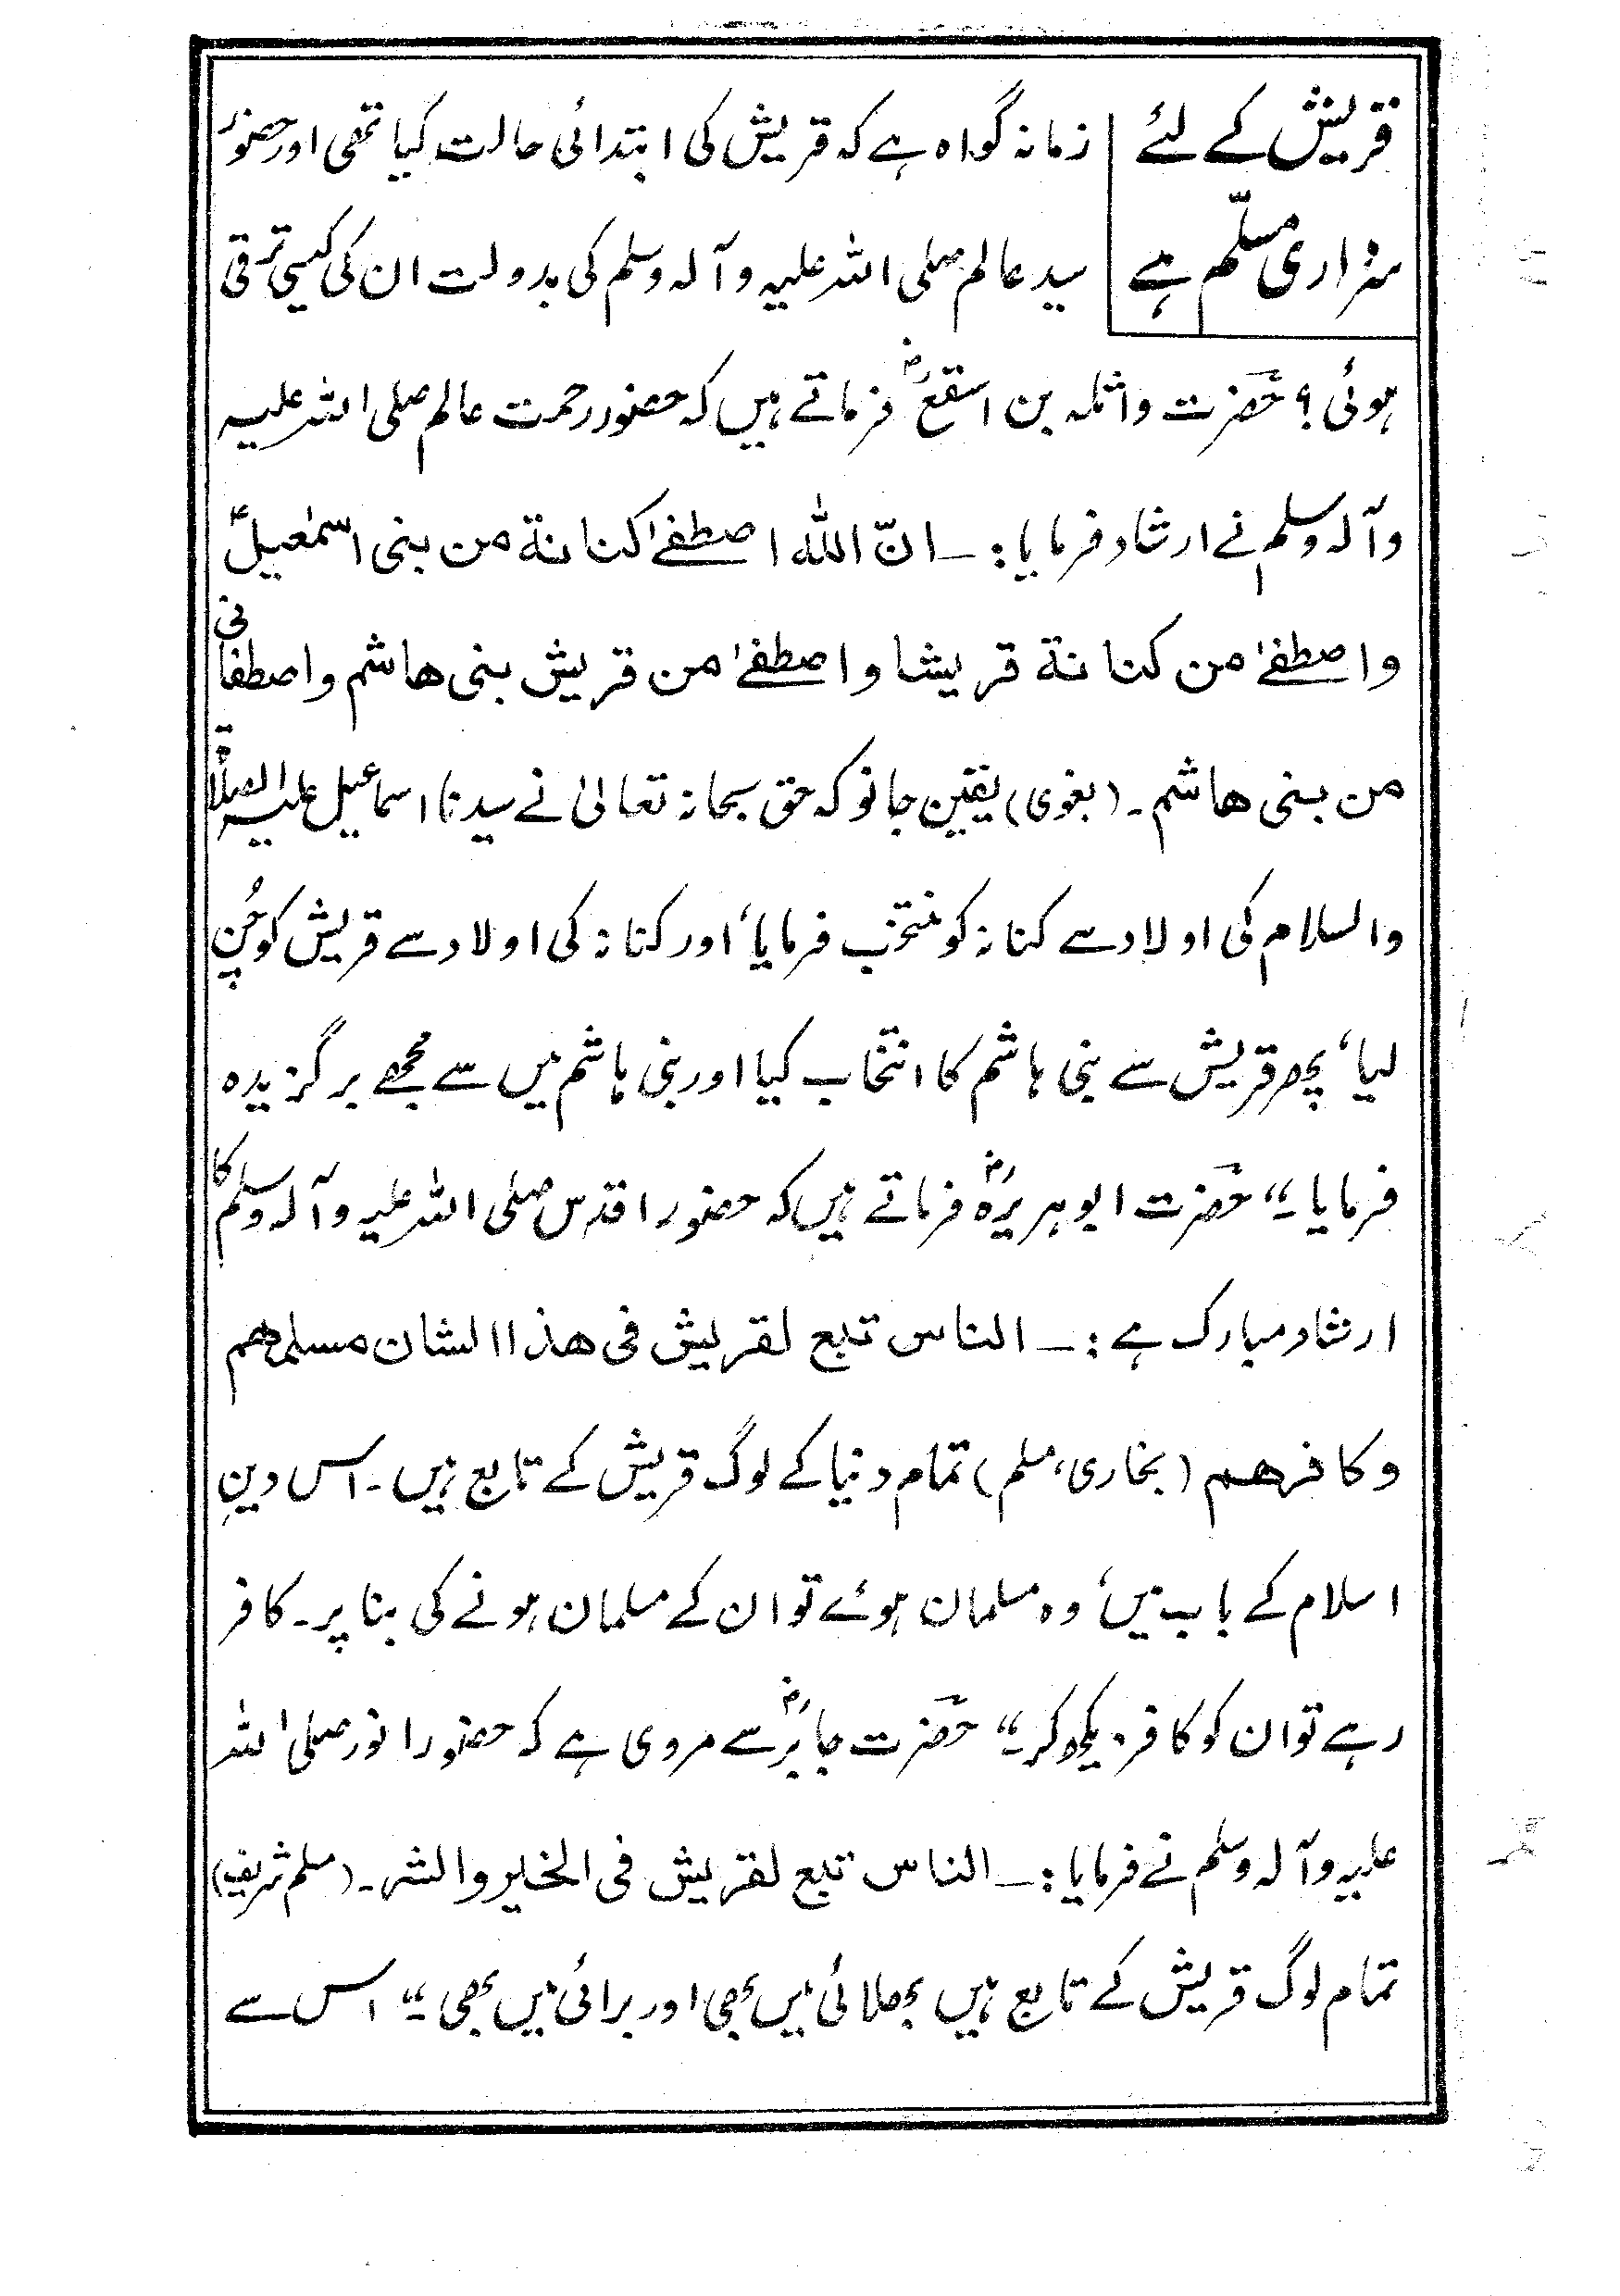 قریش کے لئے
سزاری مسلّم ہے
زمانہ گواہ ہے کہ قریش کی ابتدائی حالت کیا تھی اور حضورؐ
سید عالم صلی اللہ علیہ وآلہ وسلم کی بدولت ان کی کیسی ترقی
ہوئی؟ حضرت واثلہ بن اسقعؓ فرماتے ہیں کہ حضور رحمت عالم صلی اللہ علیہ
وآلہ وسلم نے ارشاد فرمایا:۔ انّ اللہ اصطفےٰ کنانة من بنی اسمٰعیلؑ
واصطفےٰ من کنانة قریشا واصطفےٰ من قریش بنی ھاشم واصطفانی
من بنی ھاشم۔ (بغوی) یقین جانو کہ حق سبحانہ تعالیٰ نے سیدنا اسماعیل علیہ الصلاۃ
والسلام کی اولاد سے کنانہ کو منتخب فرمایا، اور کنانہ کی اولاد سے قریش کو چُن
لیا، پھر قریش سے بنی ہاشم کا انتخاب کیا اور بنی ہاشم میں سے مجھے برگزیدہ
فرمایا۔" حضرت ابوہریرہؓ فرماتے ہیں کہ حضور اقدس صلی اللہ علیہ وآلہ وسلم کا
ارشاد مبارک ہے:۔ الناس تبع لقریش فی ھذا الشان مسلمھم
وکافرھم (بخاری، مسلم) تمام دنیا کے لوگ قریش کے تابع ہیں۔ اس دینِ
اسلام کے باب میں، وہ مسلمان ہوئے تو ان کے مسلمان ہونے کی بنا پر۔ کافر
رہے تو ان کو کافر دیکھ کر۔" حضرت جابرؓ سے مروی ہے کہ حضور انور صلی اللہ
علیہ وآلہ وسلم نے فرمایا:۔ الناس تبع لقریش فی الخیر والشر۔ (مسلم شریف)
تمام لوگ قریش کے تابع ہیں بھلائی میں بھی اور برائی میں بھی۔" اس سے